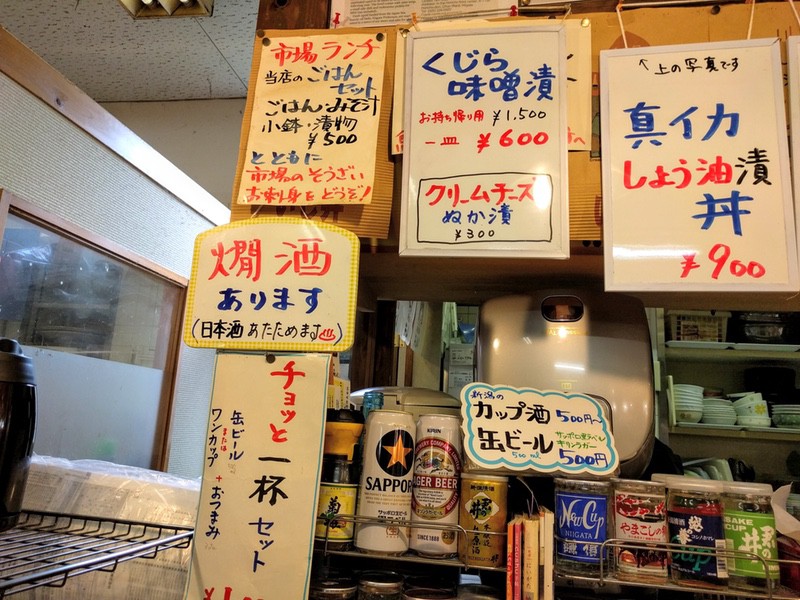 市場ランチ
当店のごはん
セット
ごはん みそ汁
小鉢・漬物
¥500
とともに
市場のそうざい
お刺身をどうぞ!
くじら
味噌漬
お持ち帰り用 ¥1,500
一皿 ¥600
クリームチーズ
ぬか漬
¥300
↑上の写真です
真イカ
しょう油漬
丼
¥900
燗酒
あります
(日本酒あたためます♨)
チョッと一杯セット
缶ビール
または
ワンカップ
+おつまみ
新潟の
カップ酒 500円〜
缶ビール サッポロ黒ラベル
キリンラガー
500ml 500円
SAPPORO
KIRIN
LAGER BEER
SINCE 1888
New Cup
NIIGATA
SAKE
CUP